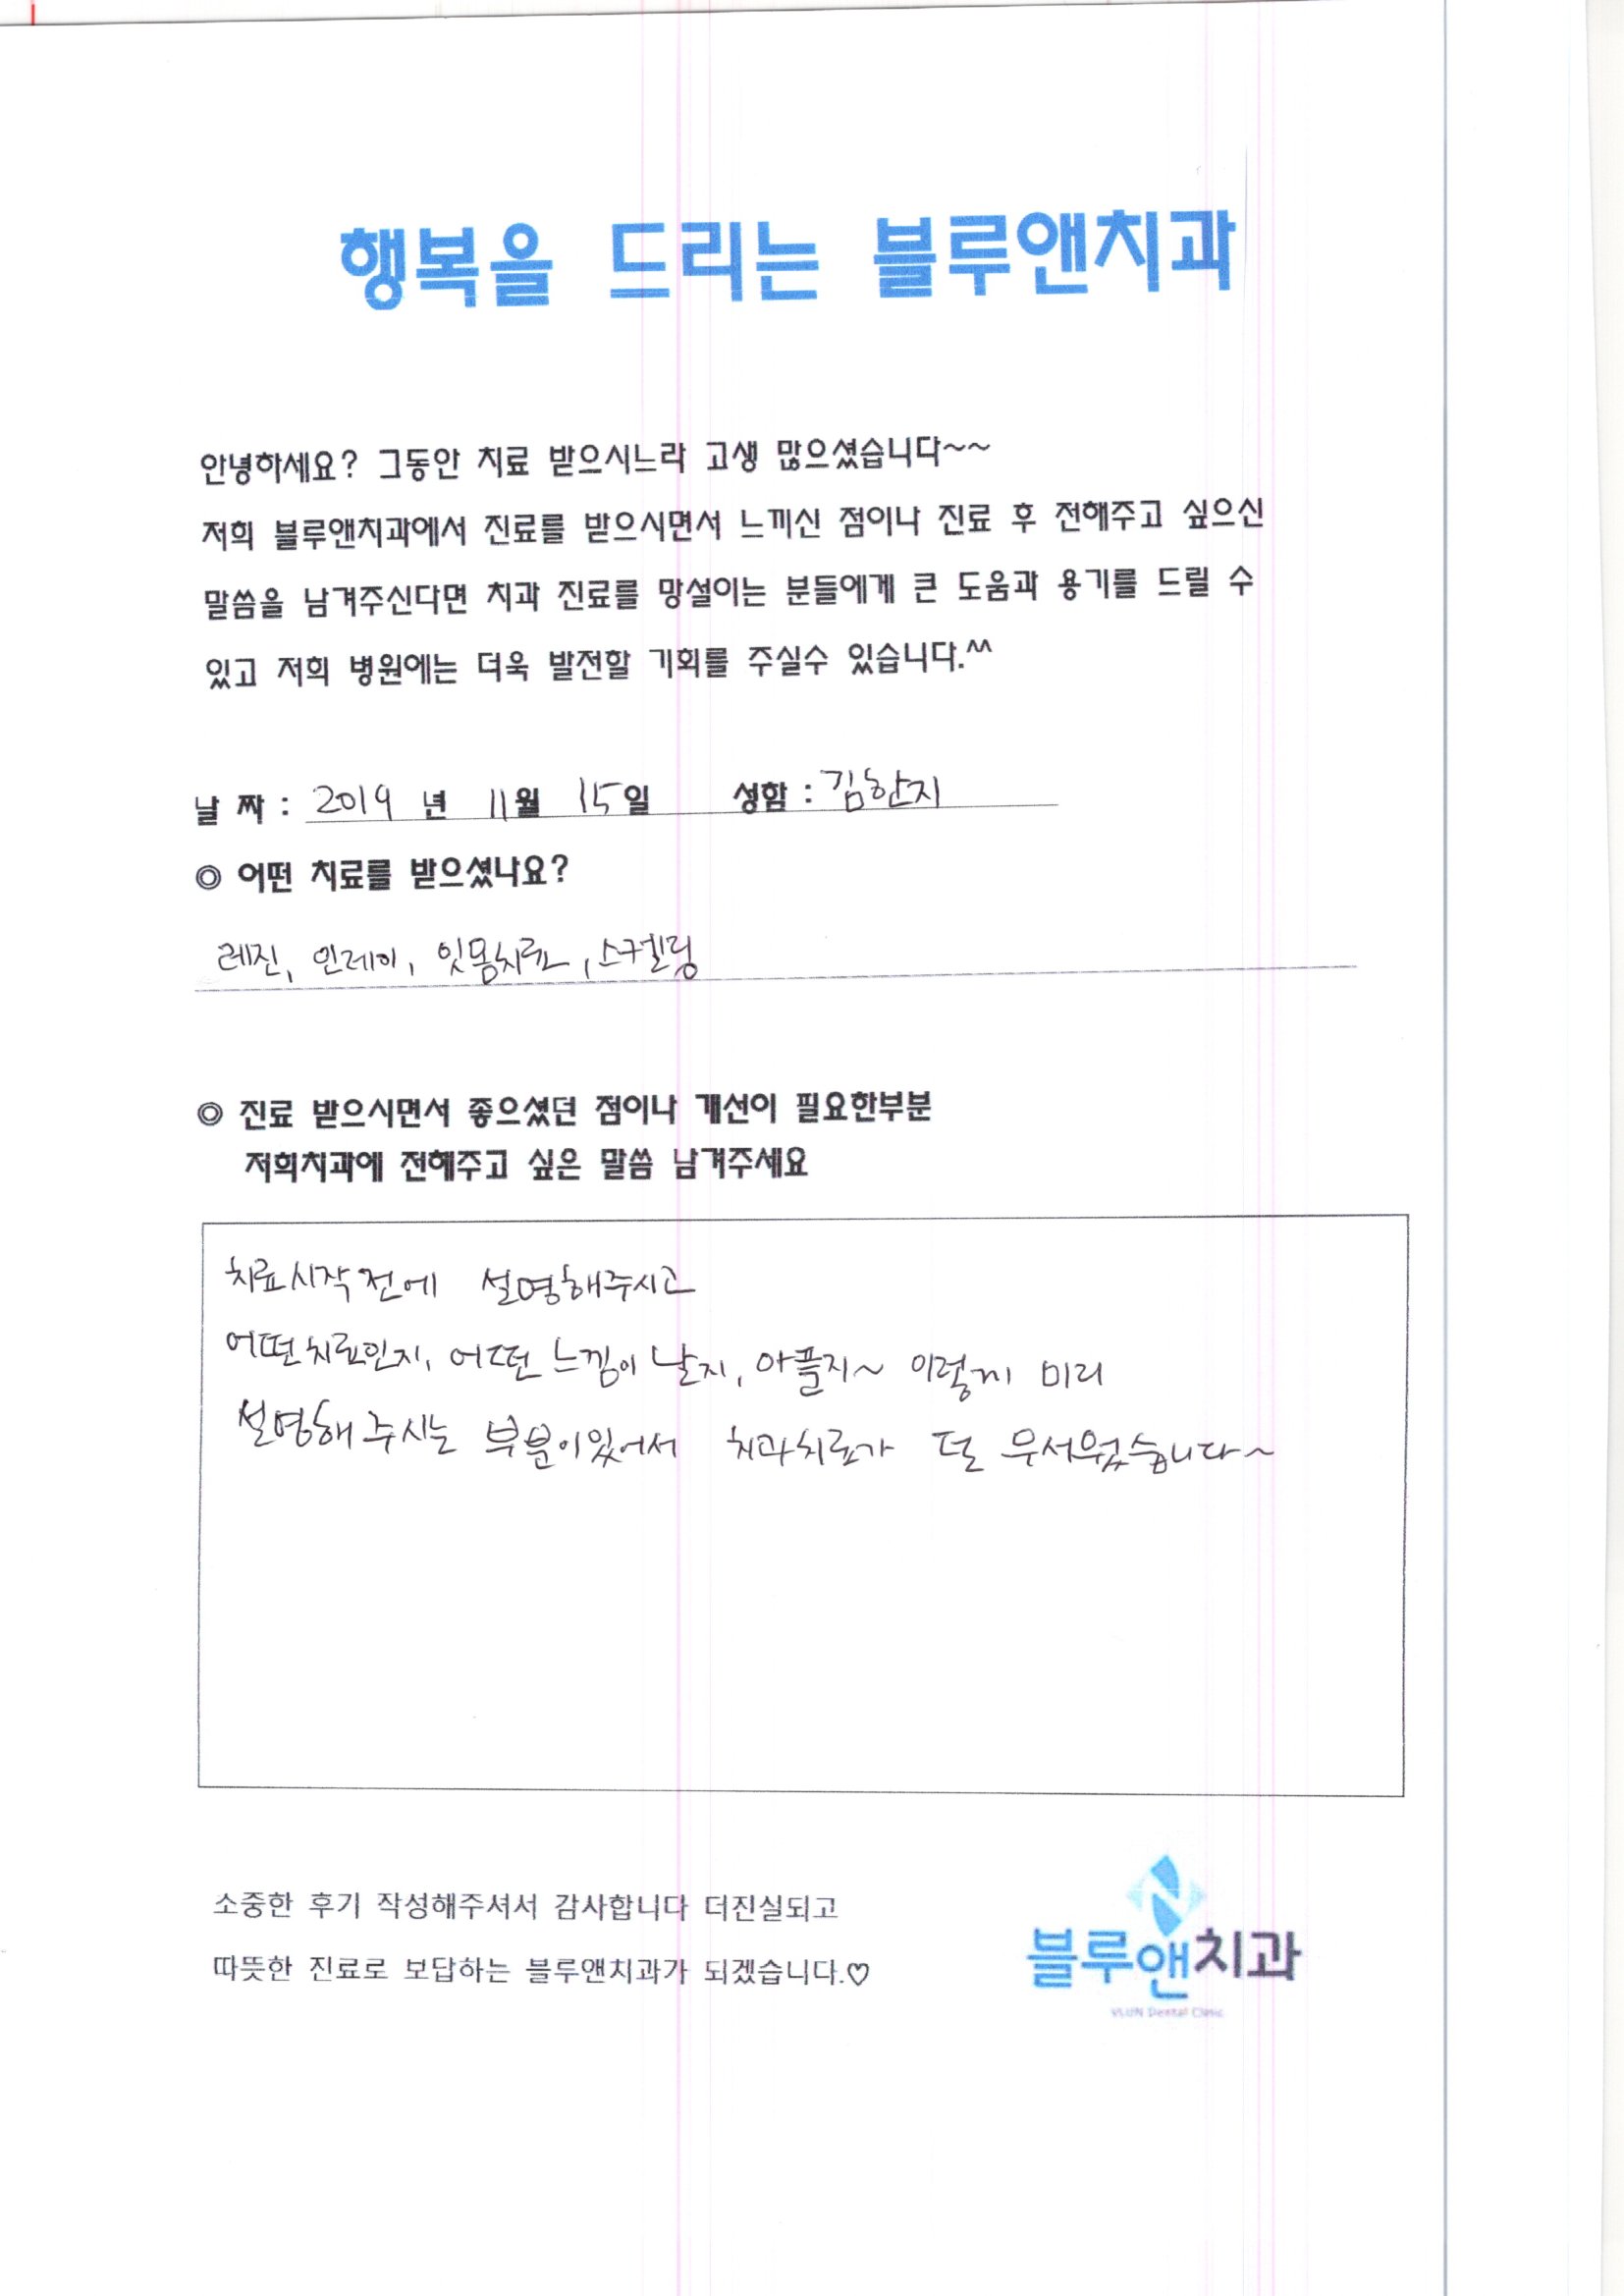 행복을 드리는 블루앤치과
안녕하세요? 그동안 치료 받으시느라 고생 많으셨습니다~~
저희 블루앤치과에서 진료를 받으시면서 느끼신 점이나 진료 후 전해주고 싶으신
말씀을 남겨주신다면 치과 진료를 망설이는 분들에게 큰 도움과 용기를 드릴 수
있고 저희 병원에는 더욱 발전할 기회를 주실수 있습니다.^^
날 짜 : 2019 년 11월 15일 성함 : 김한지
◎ 어떤 치료를 받으셨나요?
레진, 인레이, 잇몸치료, 스켈링
◎ 진료 받으시면서 좋으셨던 점이나 개선이 필요한부분
저희치과에 전해주고 싶은 말씀 남겨주세요
치료시작 전에 설명해주시고
어떤치료인지, 어떤 느낌이 날지, 아플지~ 이렇게 미리
설명해 주시는 부분이있어서 치과치료가 덜 무서웠습니다~
소중한 후기 작성해주셔서 감사합니다 더진실되고
따뜻한 진료로 보답하는 블루앤치과가 되겠습니다.♡
블루앤치과
VLUN Dental Clinic